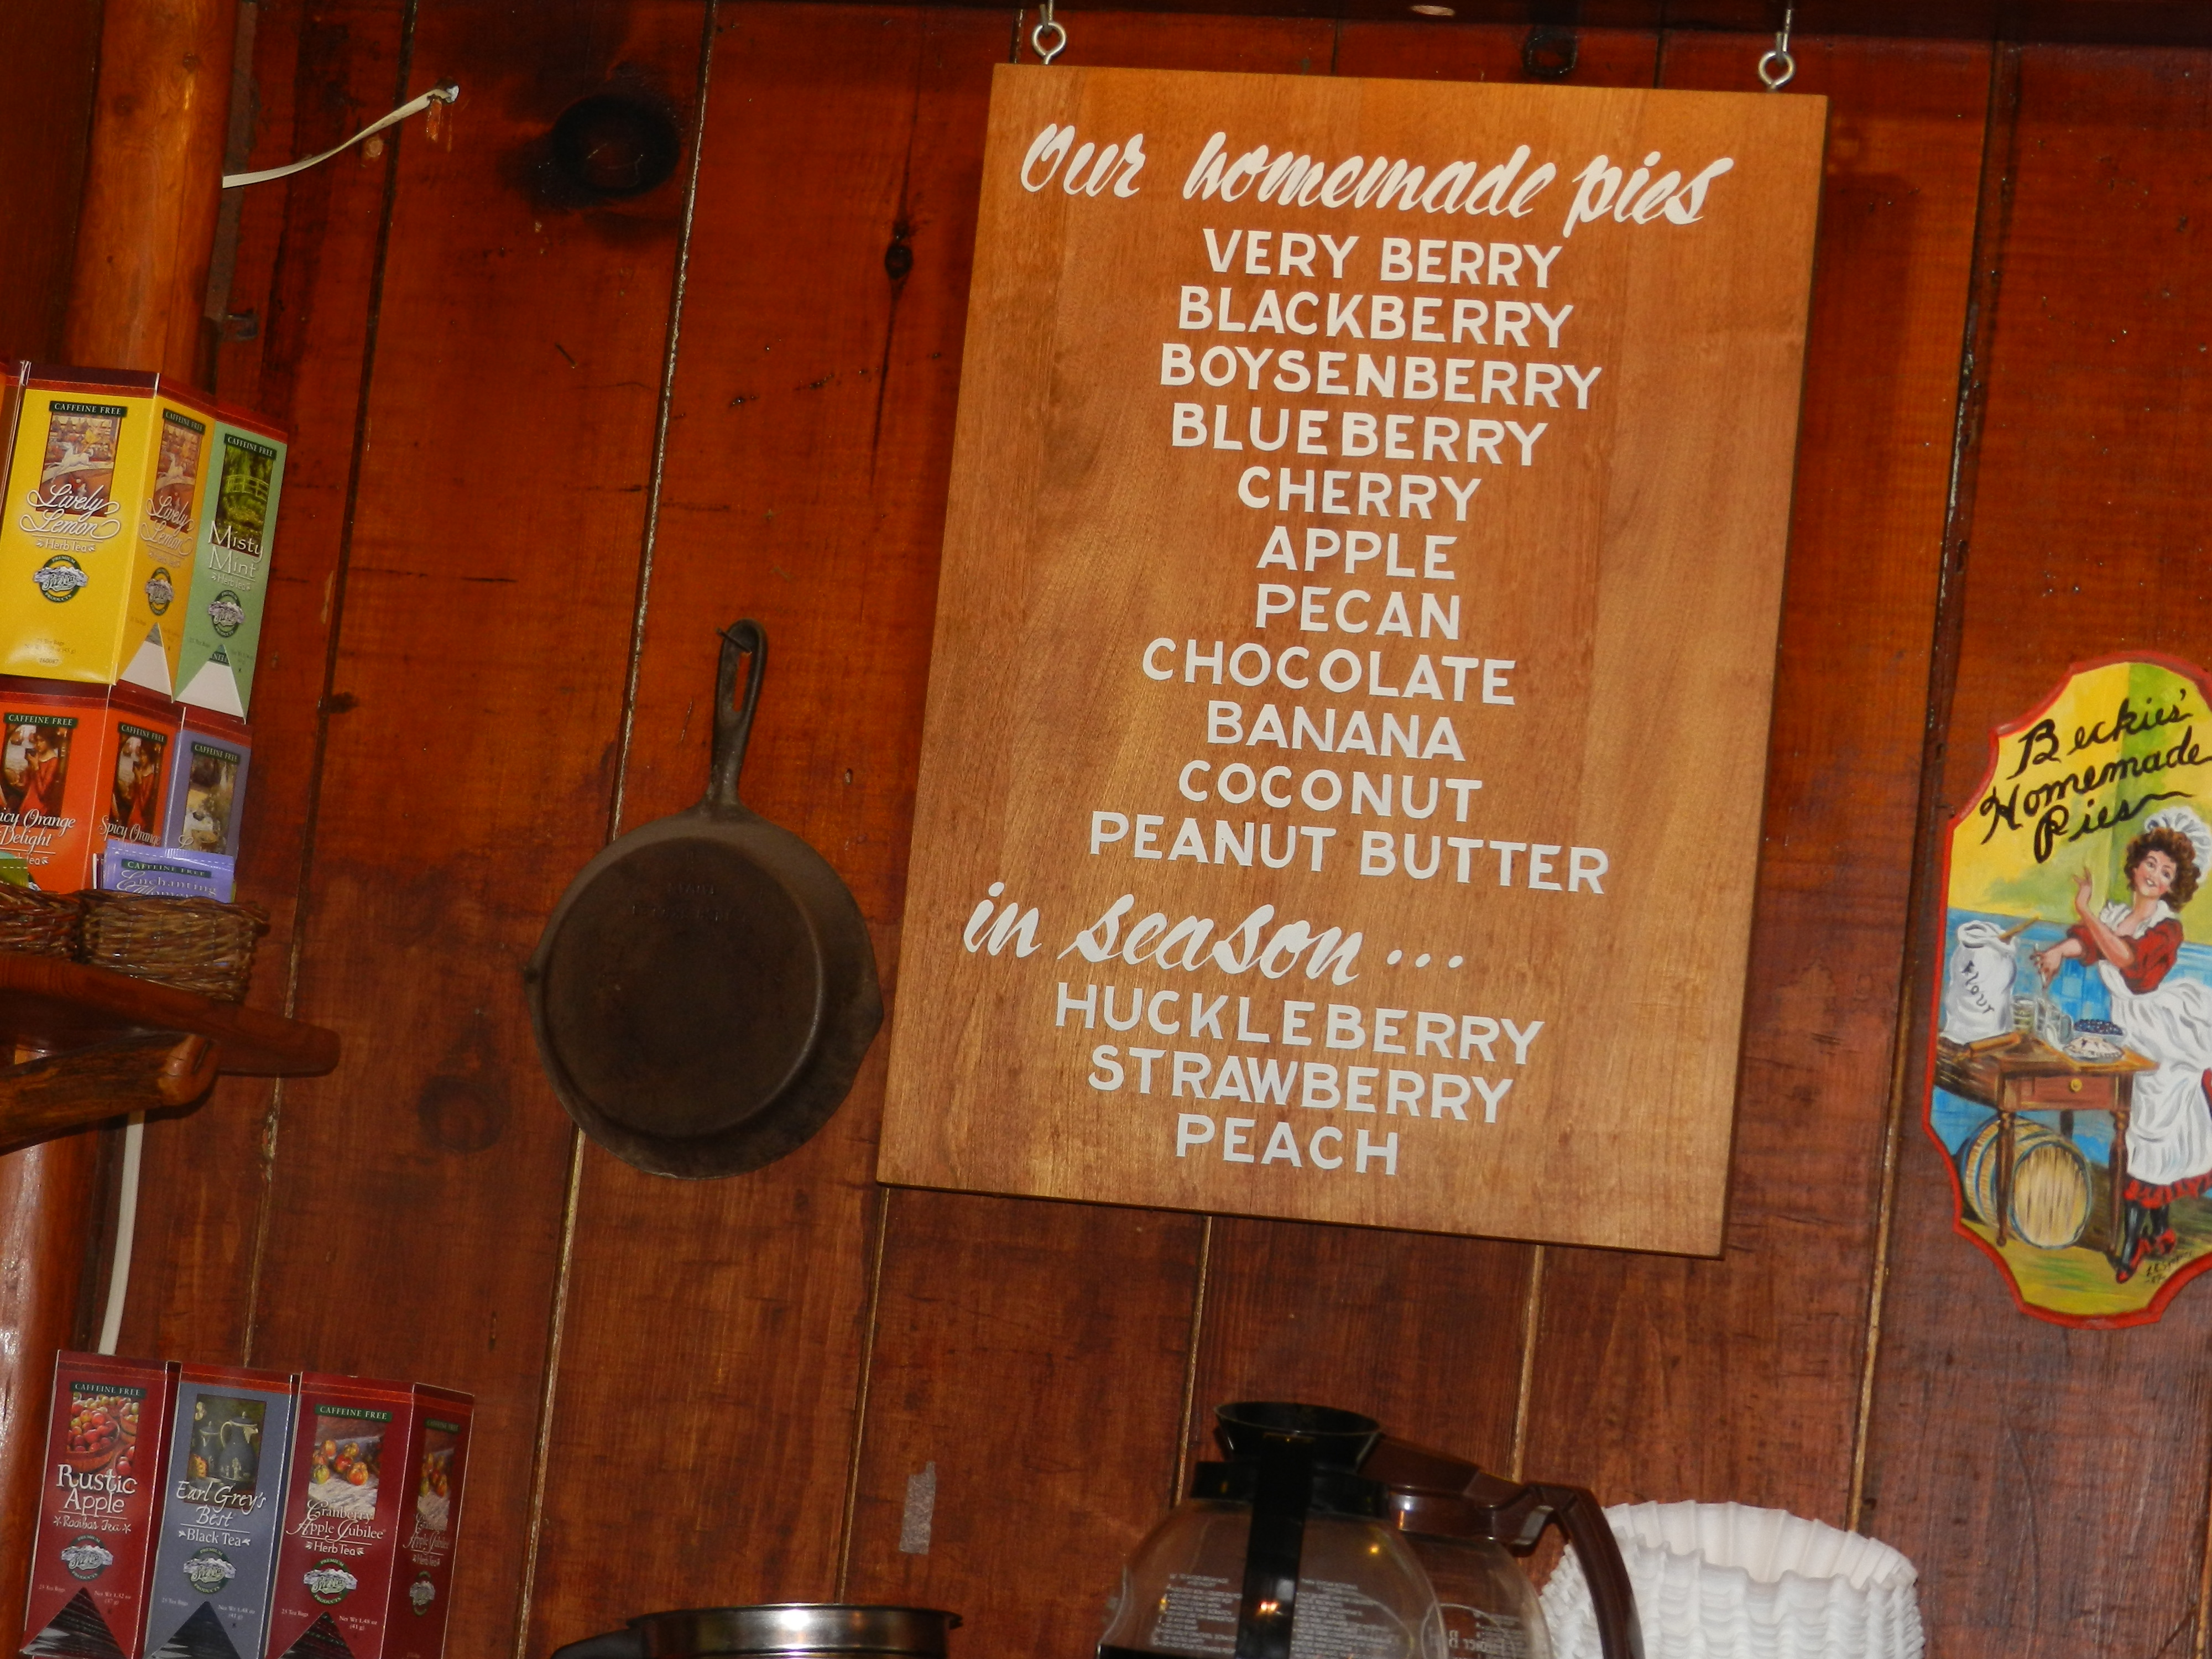 Our homemade pies
VERY BERRY
BLACKBERRY
BOYSENBERRY
BLUEBERRY
CHERRY
APPLE
PECAN
CHOCOLATE
BANANA
COCONUT
PEANUT BUTTER
in season...
HUCKLEBERRY
STRAWBERRY
PEACH
Beckies'
Homemade
Pies
Flour
CAFFEINE FREE
Lively
Lemon
Herb Tea
CAFFEINE FREE
Lively
Lemon
CAFFEINE FREE
Misty
Mint
Herb Tea
CAFFEINE FREE
icy Orange
Delight
Tea
CAFFEINE FREE
Spicy Orange
CAFFEINE FREE
CAFFEINE FREE
Enchanting
CAFFEINE FREE
Rustic
Apple
Rooibos Tea
Earl Grey's
Best
Black Tea
CAFFEINE FREE
Cranberry
Apple Jubilee
Herb Tea
CAFFEINE FREE
Apple Jubilee
Herb Tea